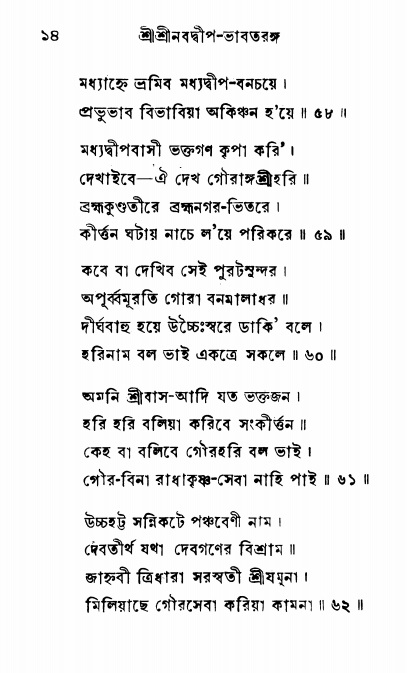 ১৪ শ্রীশ্রীনবদ্বীপ-ভাবতরঙ্গ
মধ্যাহ্নে ভ্রমিব মধ্যদ্বীপ-বনচয়ে ।
প্রভুভাব বিভাবিয়া অকিঞ্চন হ’য়ে ॥ ৫৮ ॥
মধ্যদ্বীপবাসী ভক্তগণ কৃপা করি’ ।
দেখাইবে—ঐ দেখ গৌরাঙ্গশ্রীহরি ॥
ব্রহ্মকুণ্ডতীরে ব্রহ্মনগর-ভিতরে ।
কীর্ত্তন ঘটায় নাচে ল’য়ে পরিকরে ॥ ৫৯ ॥
কবে বা দেখিব সেই পুরটসুন্দর ।
অপূর্ব্বমূরতি গোরা বনমালাধর ॥
দীর্ঘবাহু হয়ে উচ্চৈঃস্বরে ডাকি’ বলে ।
হরিনাম বল ভাই একত্রে সকলে ॥ ৬০ ॥
অমনি শ্রীবাস-আদি যত ভক্তজন ।
হরি হরি বলিয়া করিবে সংকীর্ত্তন ॥
কেহ বা বলিবে গৌরহরি বল ভাই ।
গৌর-বিনা রাধাকৃষ্ণ-সেবা নাহি পাই ॥ ৬১ ॥
উচ্চহট্ট সন্নিকটে পঞ্চবেণী নাম ।
দেবতীর্থ যথা দেবগণের বিশ্রাম ॥
জাহ্নবী ত্রিধারা সরস্বতী শ্রীযমুনা ।
মিলিয়াছে গৌরসেবা করিয়া কামনা ॥ ৬২ ॥